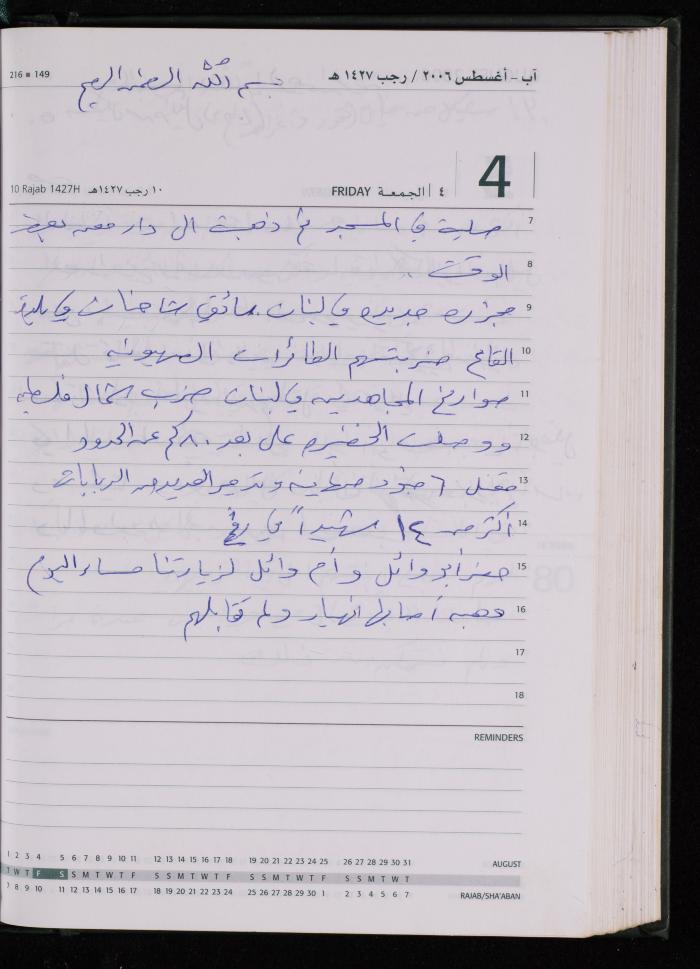 216 ■ 149 آب - أغسطس ٢٠٠٦ / رجب ١٤٢٧ هـ
بسم الله الرحمن الرحيم
4
10 Rajab 1427H ١٠ رجب ١٤٢٧هـ FRIDAY ٤ الجمعة
7 صليت في المسجد ثم ذهبت الى دار معن بعض
8 الوقت .
9 مجزره جديده في لبنان سائق شاحنات في بلدة
10 القاع ضربتهم الطائرات الصهيونيه
11 صواريخ المجاهدين في لبنان ضرب شمال فلسطين
12 ووصلت الخضيره على بعد ٨٠ كم عن الحدود
13 مقتل ٦ جنود صهاينه وتدمير العديد من الدبابات
14 أكثر من ١٤ شهيداً في رفح
15 حضر أبو وائل وأم وائل لزيارتنا مساء اليوم
16 وهبه أصابها انهيار ولم تقابلهم
17
18
REMINDERS
1 2 3 4 5 6 7 8 9 10 11 12 13 14 15 16 17 18 19 20 21 22 23 24 25 26 27 28 29 30 31 AUGUST
T W T F S S M T W T F S S M T W T F S S M T W T F S S M T W T
7 8 9 10 11 12 13 14 15 16 17 18 19 20 21 22 23 24 25 26 27 28 29 30 1 2 3 4 5 6 7 RAJAB/SHA'ABAN